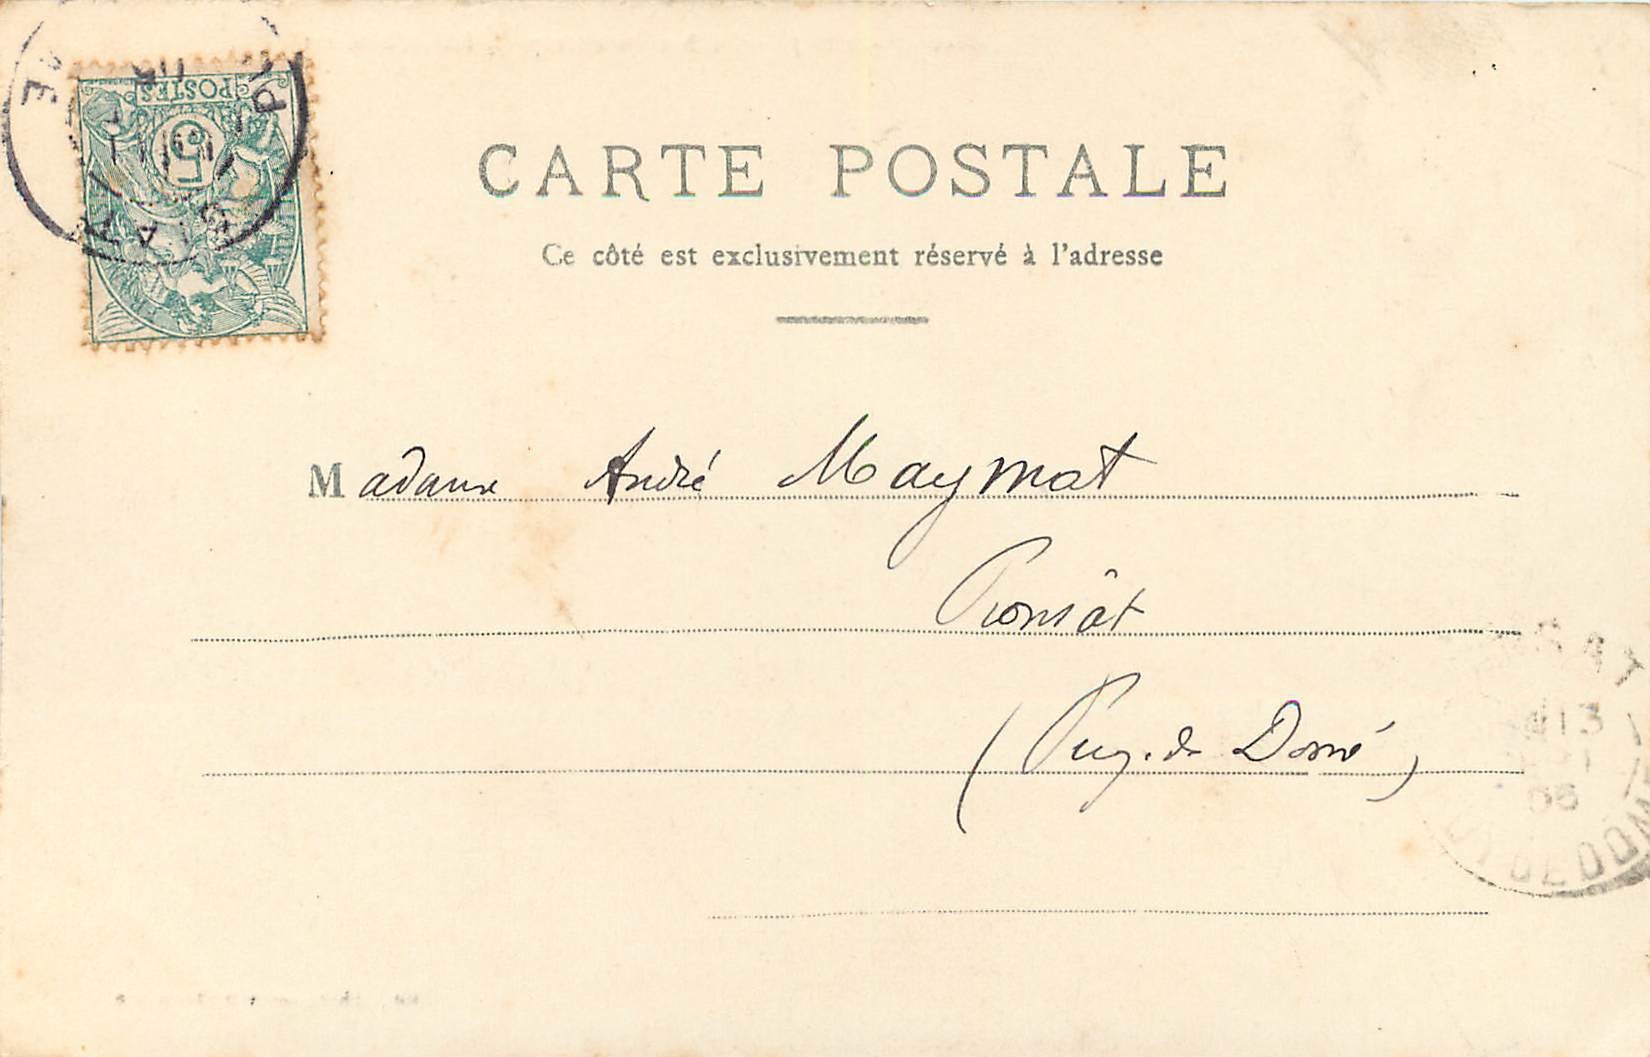 POSTES
5
CARTE POSTALE
Ce côté est exclusivement réservé à l'adresse
Madame André Maymat
Pionsât
(Puy-de Dome)
13
DE DOM